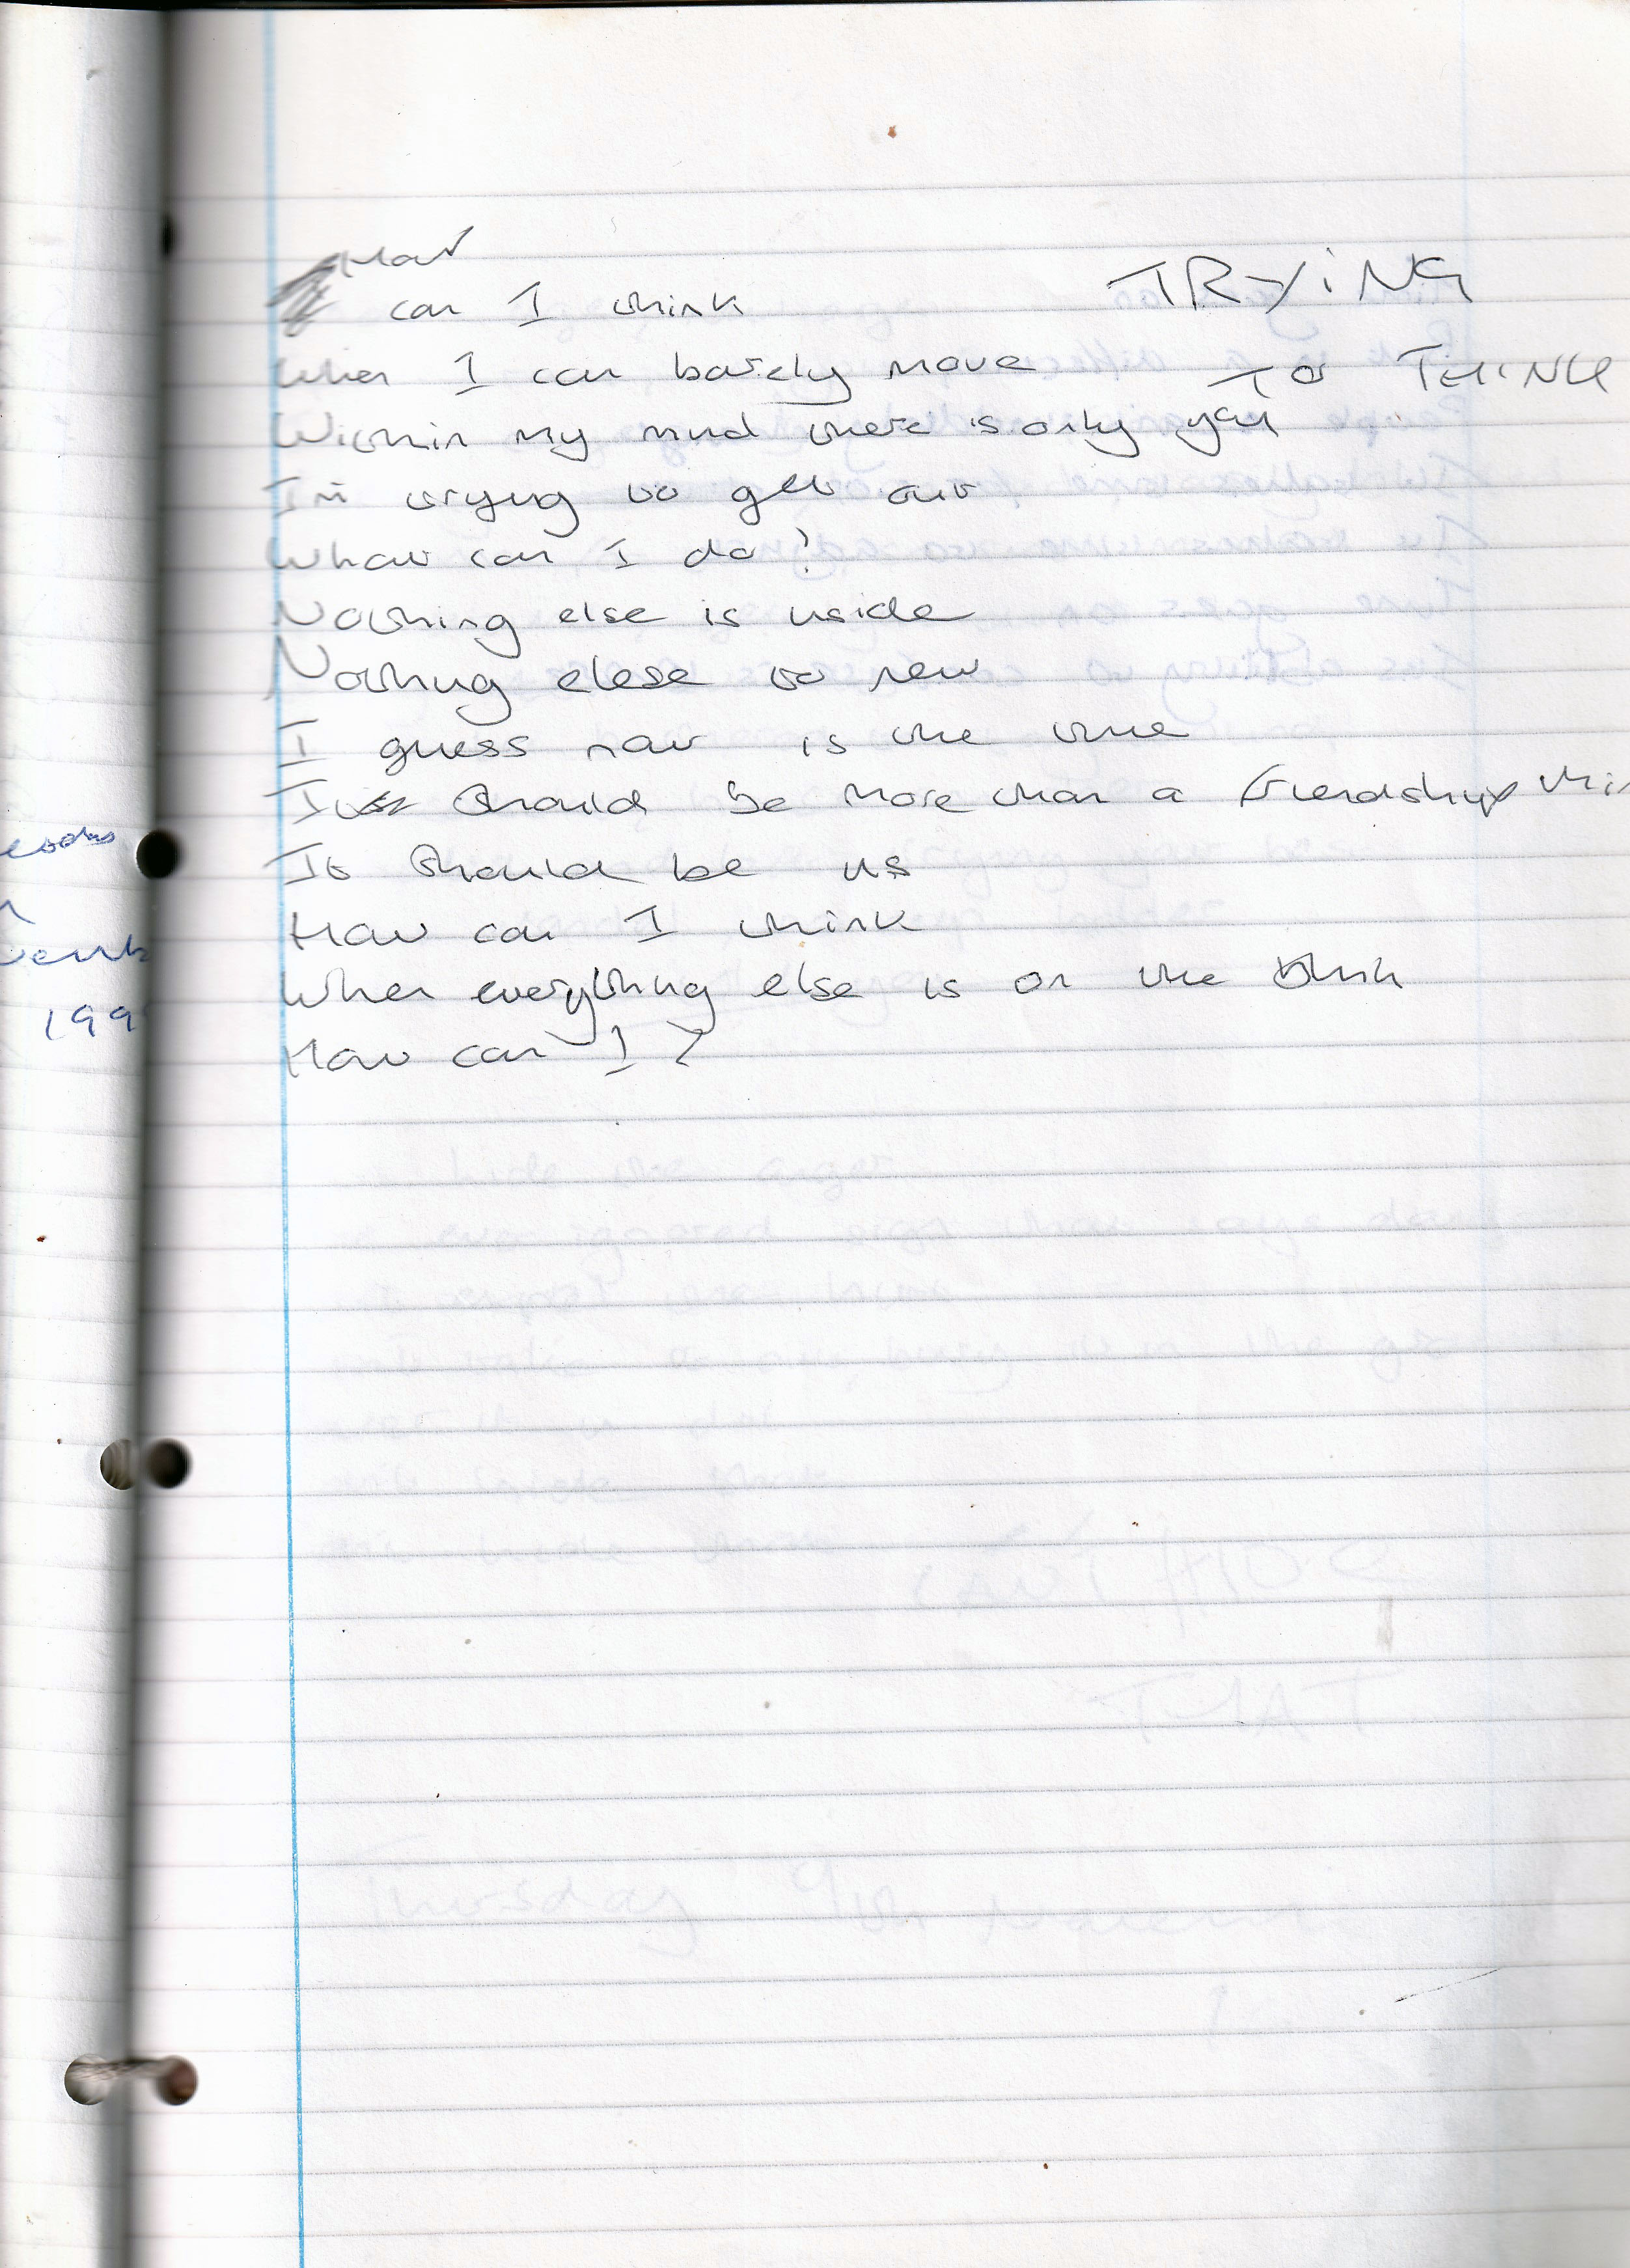 How
can I think
TRYING
When I can barely move
TO THINK
Within my mind there is only you
I'm trying to get out
What can I do?
Nothing else is inside
Nothing elese to new
I guess now is the time
It should be more than a friendship
It should be us
How can I think
When everything else is on the
How can I?
199